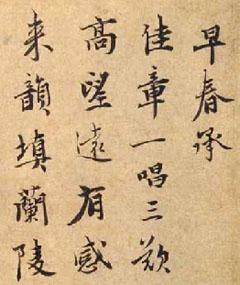 早春承
佳章一唱三歎
高望遠有感
来韻填蘭陵